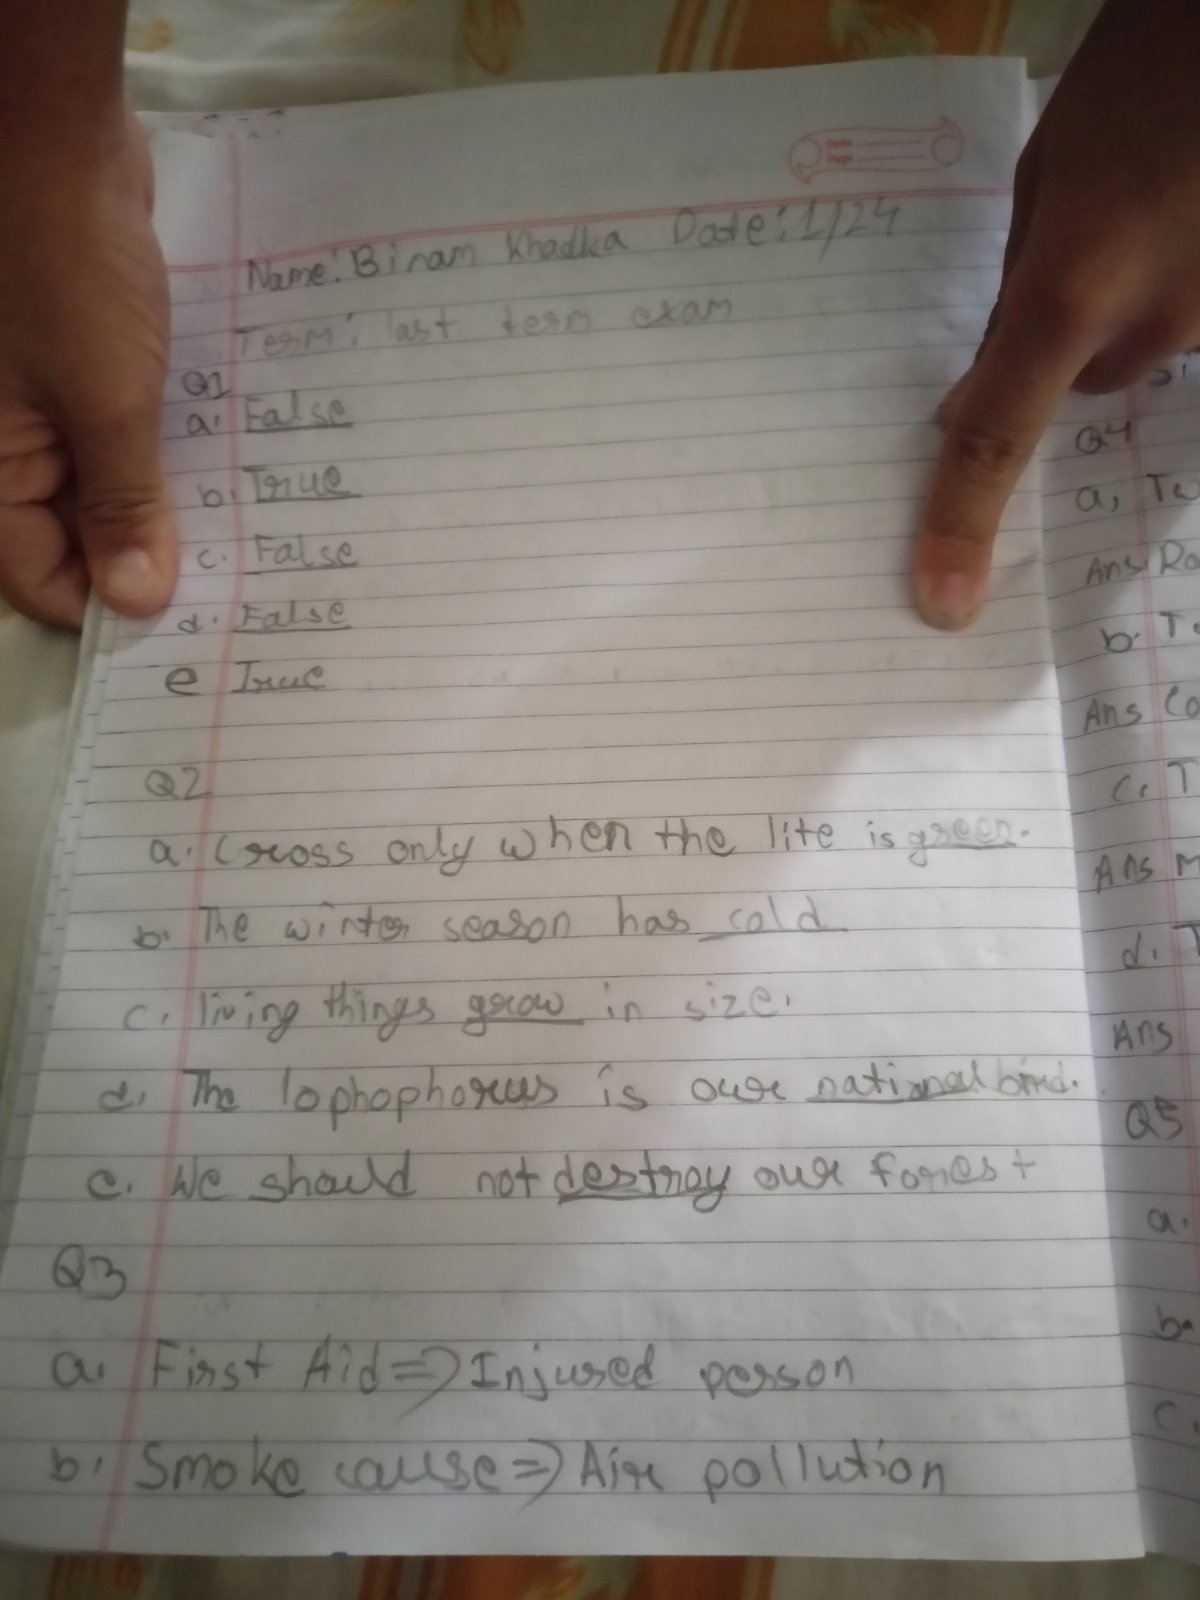 Date
Page
Name: Binam Khadka Date: 1/24
Term: last term exam
Q1
a. False
b. True
c. False
d. False
e True
Q2
a. Cross only when the lite is green.
b. The winter season has cold
c. living things grow in size.
d. The lophophorus is our national bird.
e. We should not destroy our forest
Q3
a. First Aid => Injured person
b. Smoke cause => Air pollution
Q4
a,
Ans
b.
Ans
c.
Ans
d.
Ans
Q5
a.
b.
c.